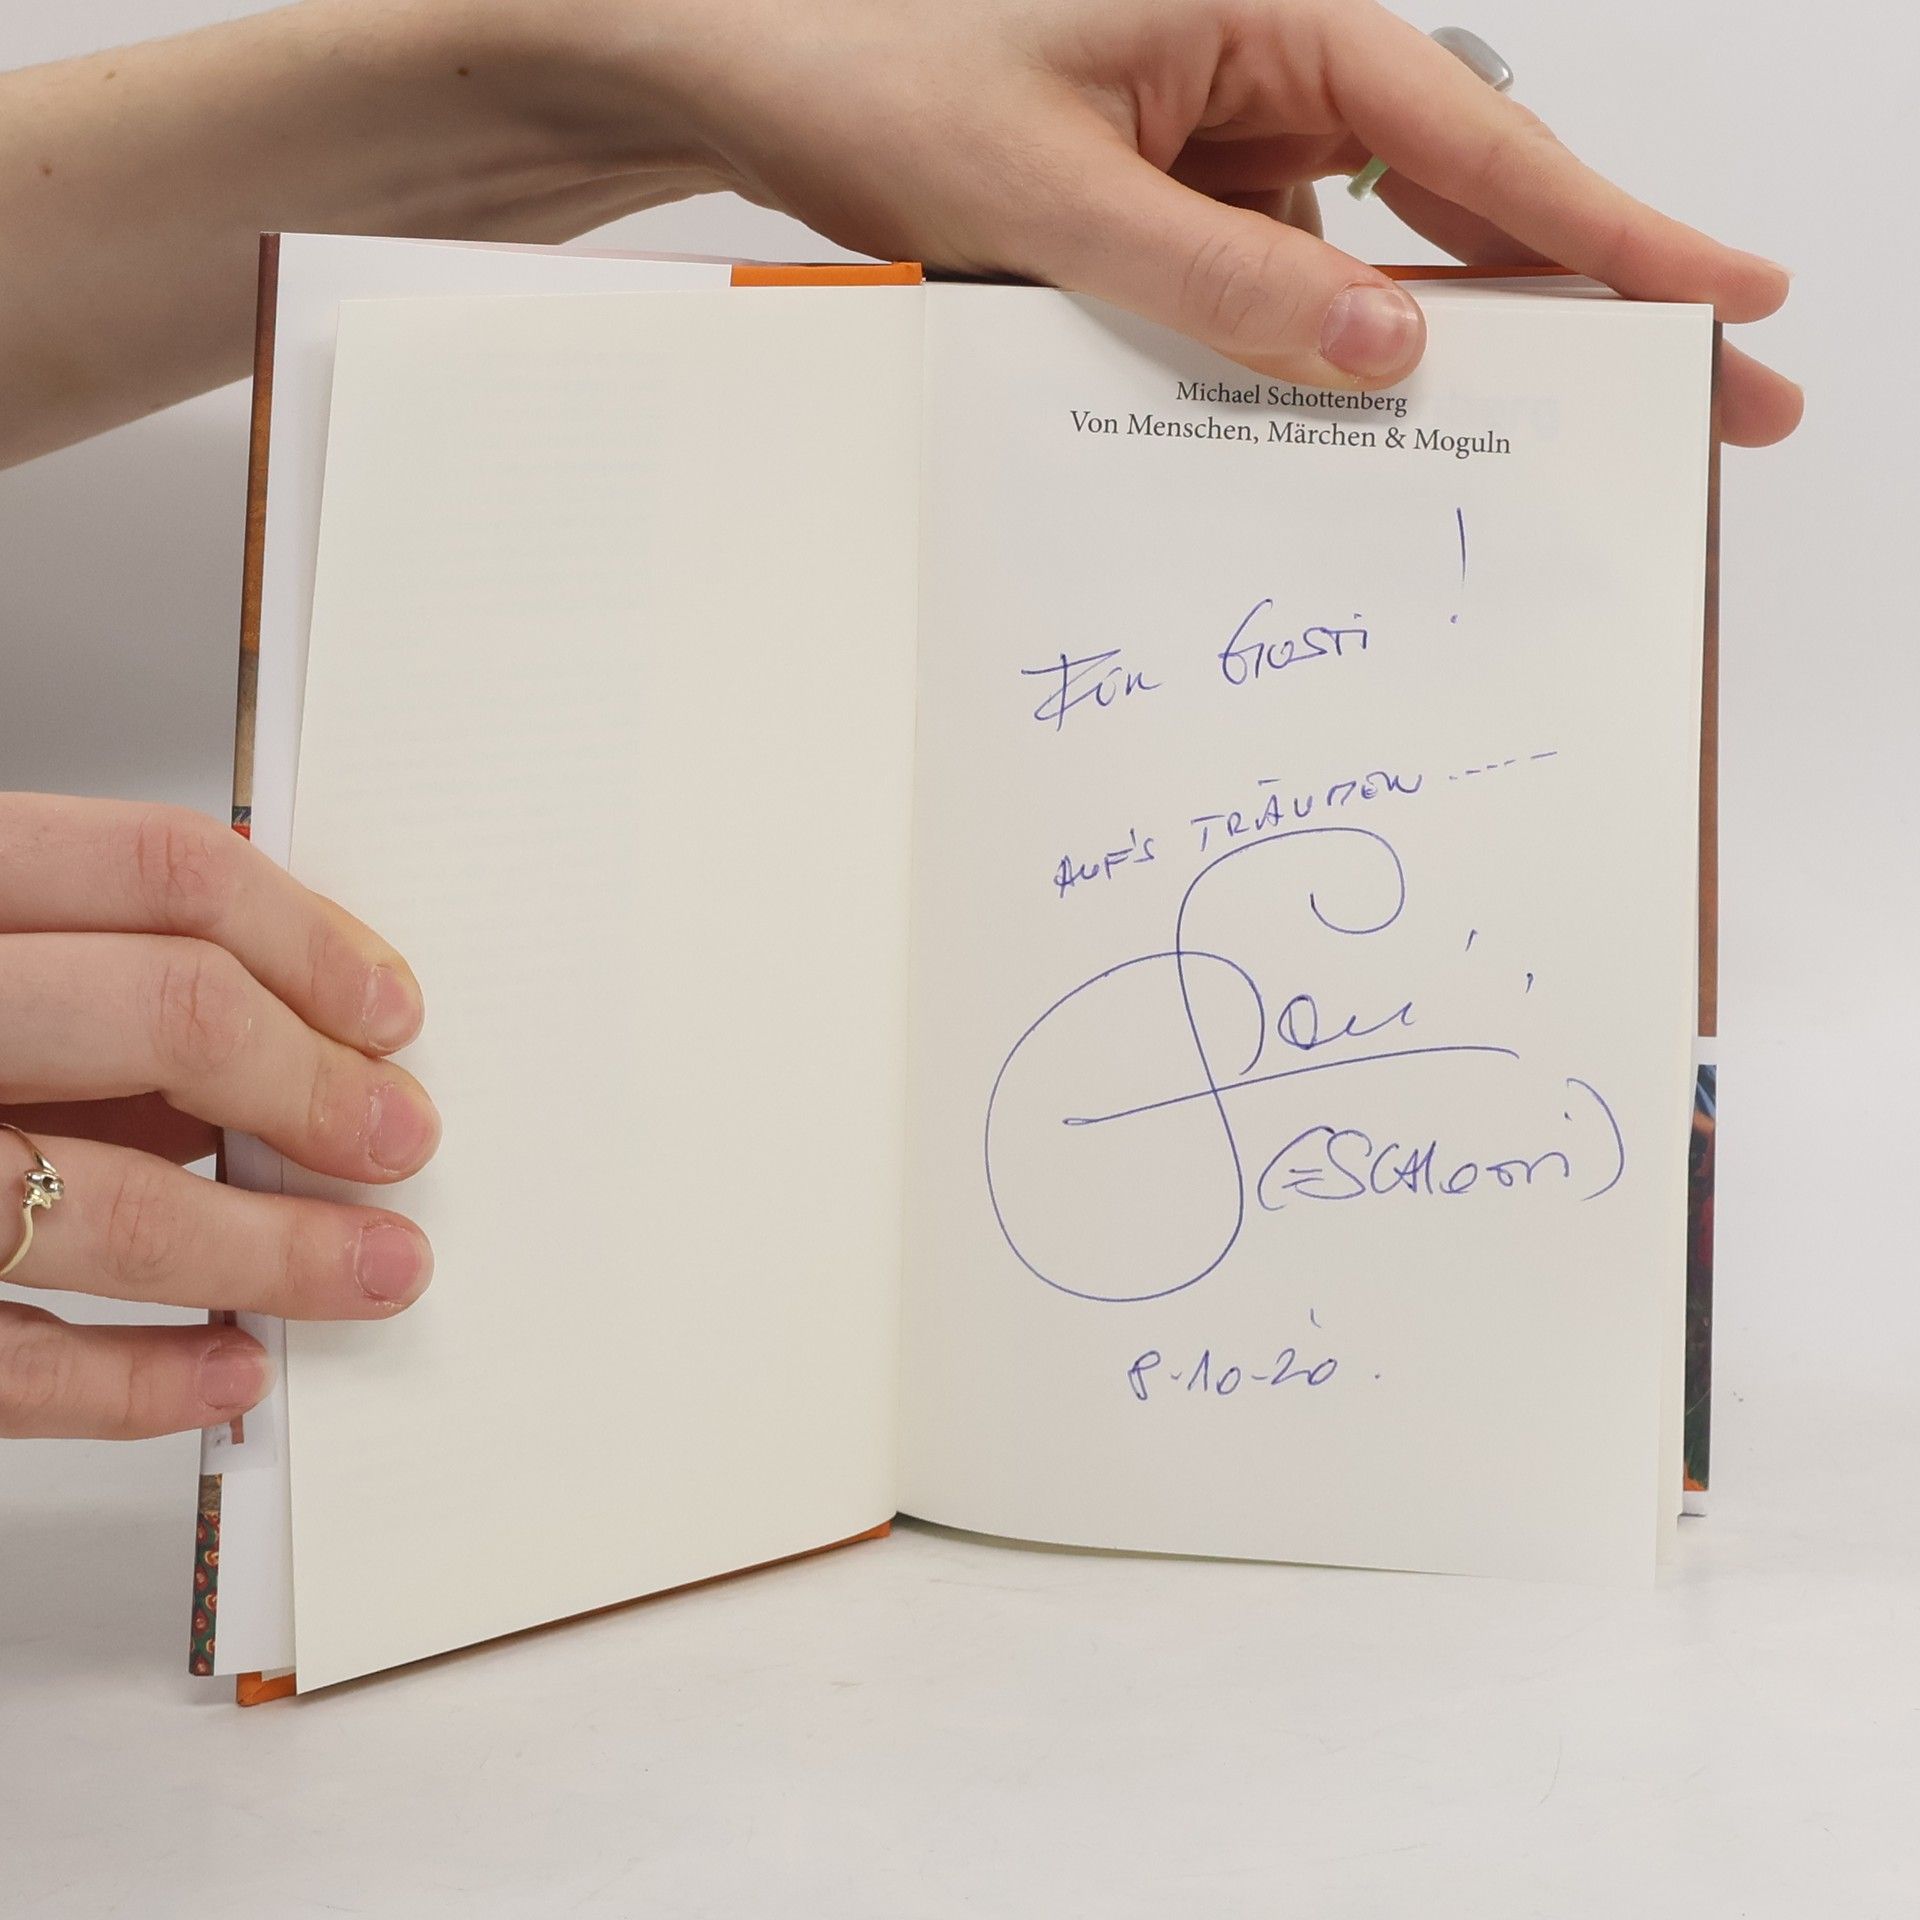 Michael Schottenberg
Von Menschen, Märchen & Moguln
Für Gusti !
AUF'S TRÄUMEN -----
(=SCHOTTI)
8-10-20.